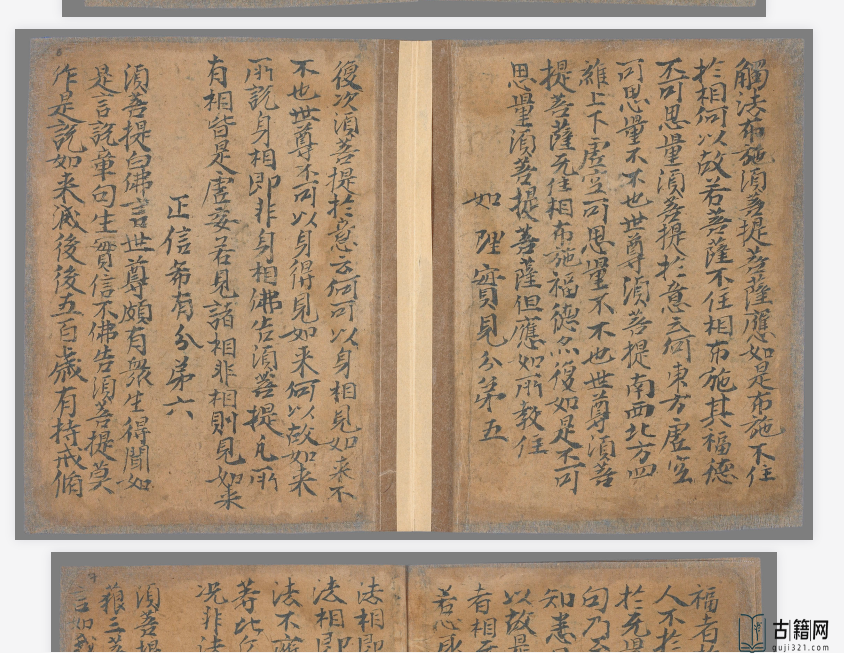 觸法布施須菩提菩薩應如是布施不住
於相何以故若菩薩不住相布施其福德
不可思量須菩提於意云何東方虛空
可思量不不也世尊須菩提南西北方四
維上下虛空可思量不不也世尊須菩
提菩薩无住相布施福德亦復如是不可
思量須菩提菩薩但應如所教住
如理實見分第五
復次須菩提於意云何可以身相見如来不
不也世尊不可以身得見如来何以故如来
所說身相即非身相佛告須菩提凡所
有相皆是虛妄若見諸相非相則見如来
正信希有分第六
須菩提白佛言世尊頗有衆生得聞如
是言說章句生實信不佛告須菩提莫
作是說如来滅後後五百歲有持戒脩
福者
人不於
於无量
句乃至
知悉
以故是
者相无
若心
法相即
法相即
法不應
菩比丘
况非法
須菩提
藐三菩
言如我
古籍网
guji321.com